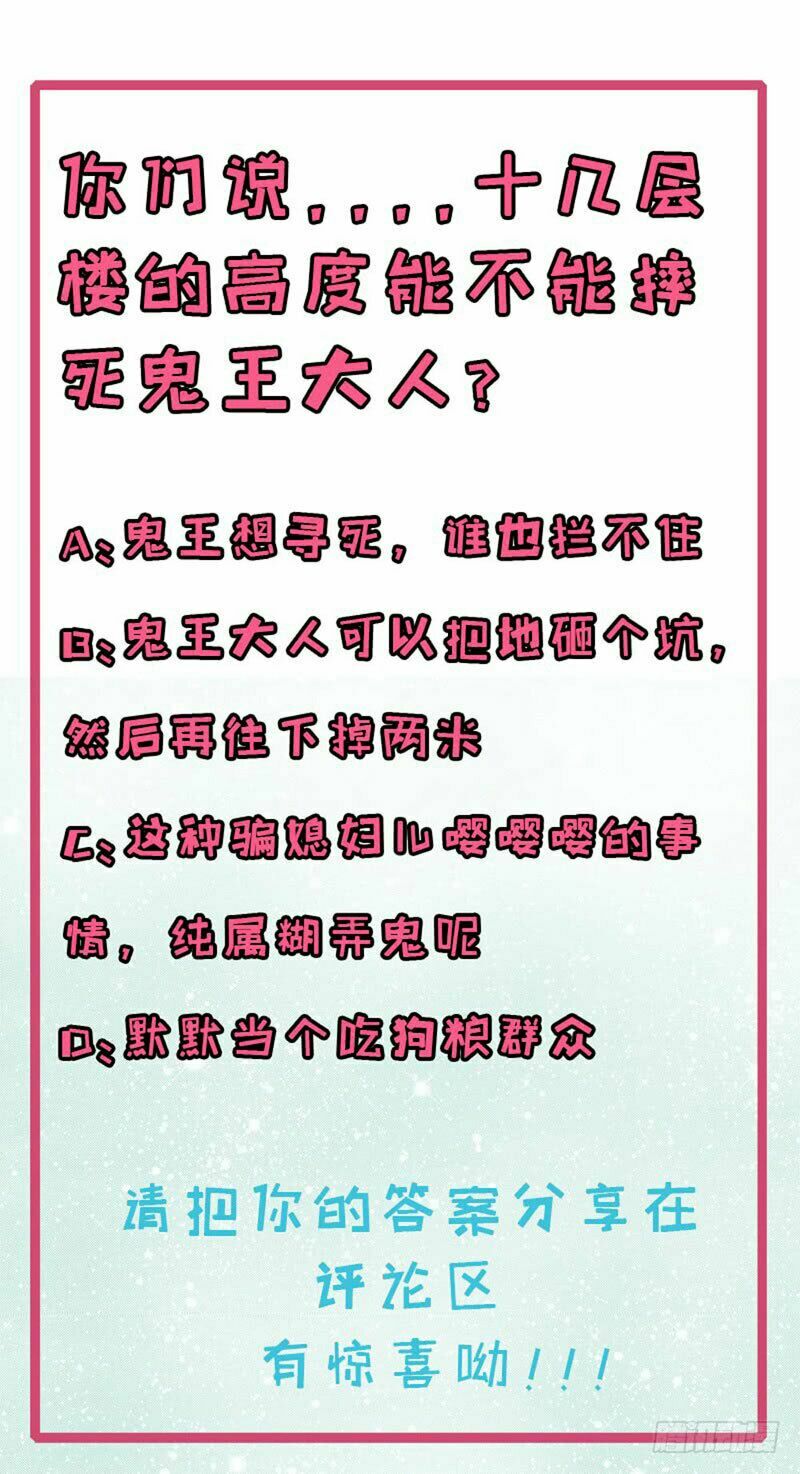 你们说....十几层
楼的高度能不能摔
死鬼王大人?
A:鬼王想寻死，谁也拦不住
B:鬼王大人可以把地砸个坑，
然后再往下掉两米
C:这种骗媳妇儿嘤嘤嘤的事
情，纯属糊弄鬼呢
D:默默当个吃狗粮群众
请把你的答案分享在
评论区
有惊喜呦!!!
腾讯动漫